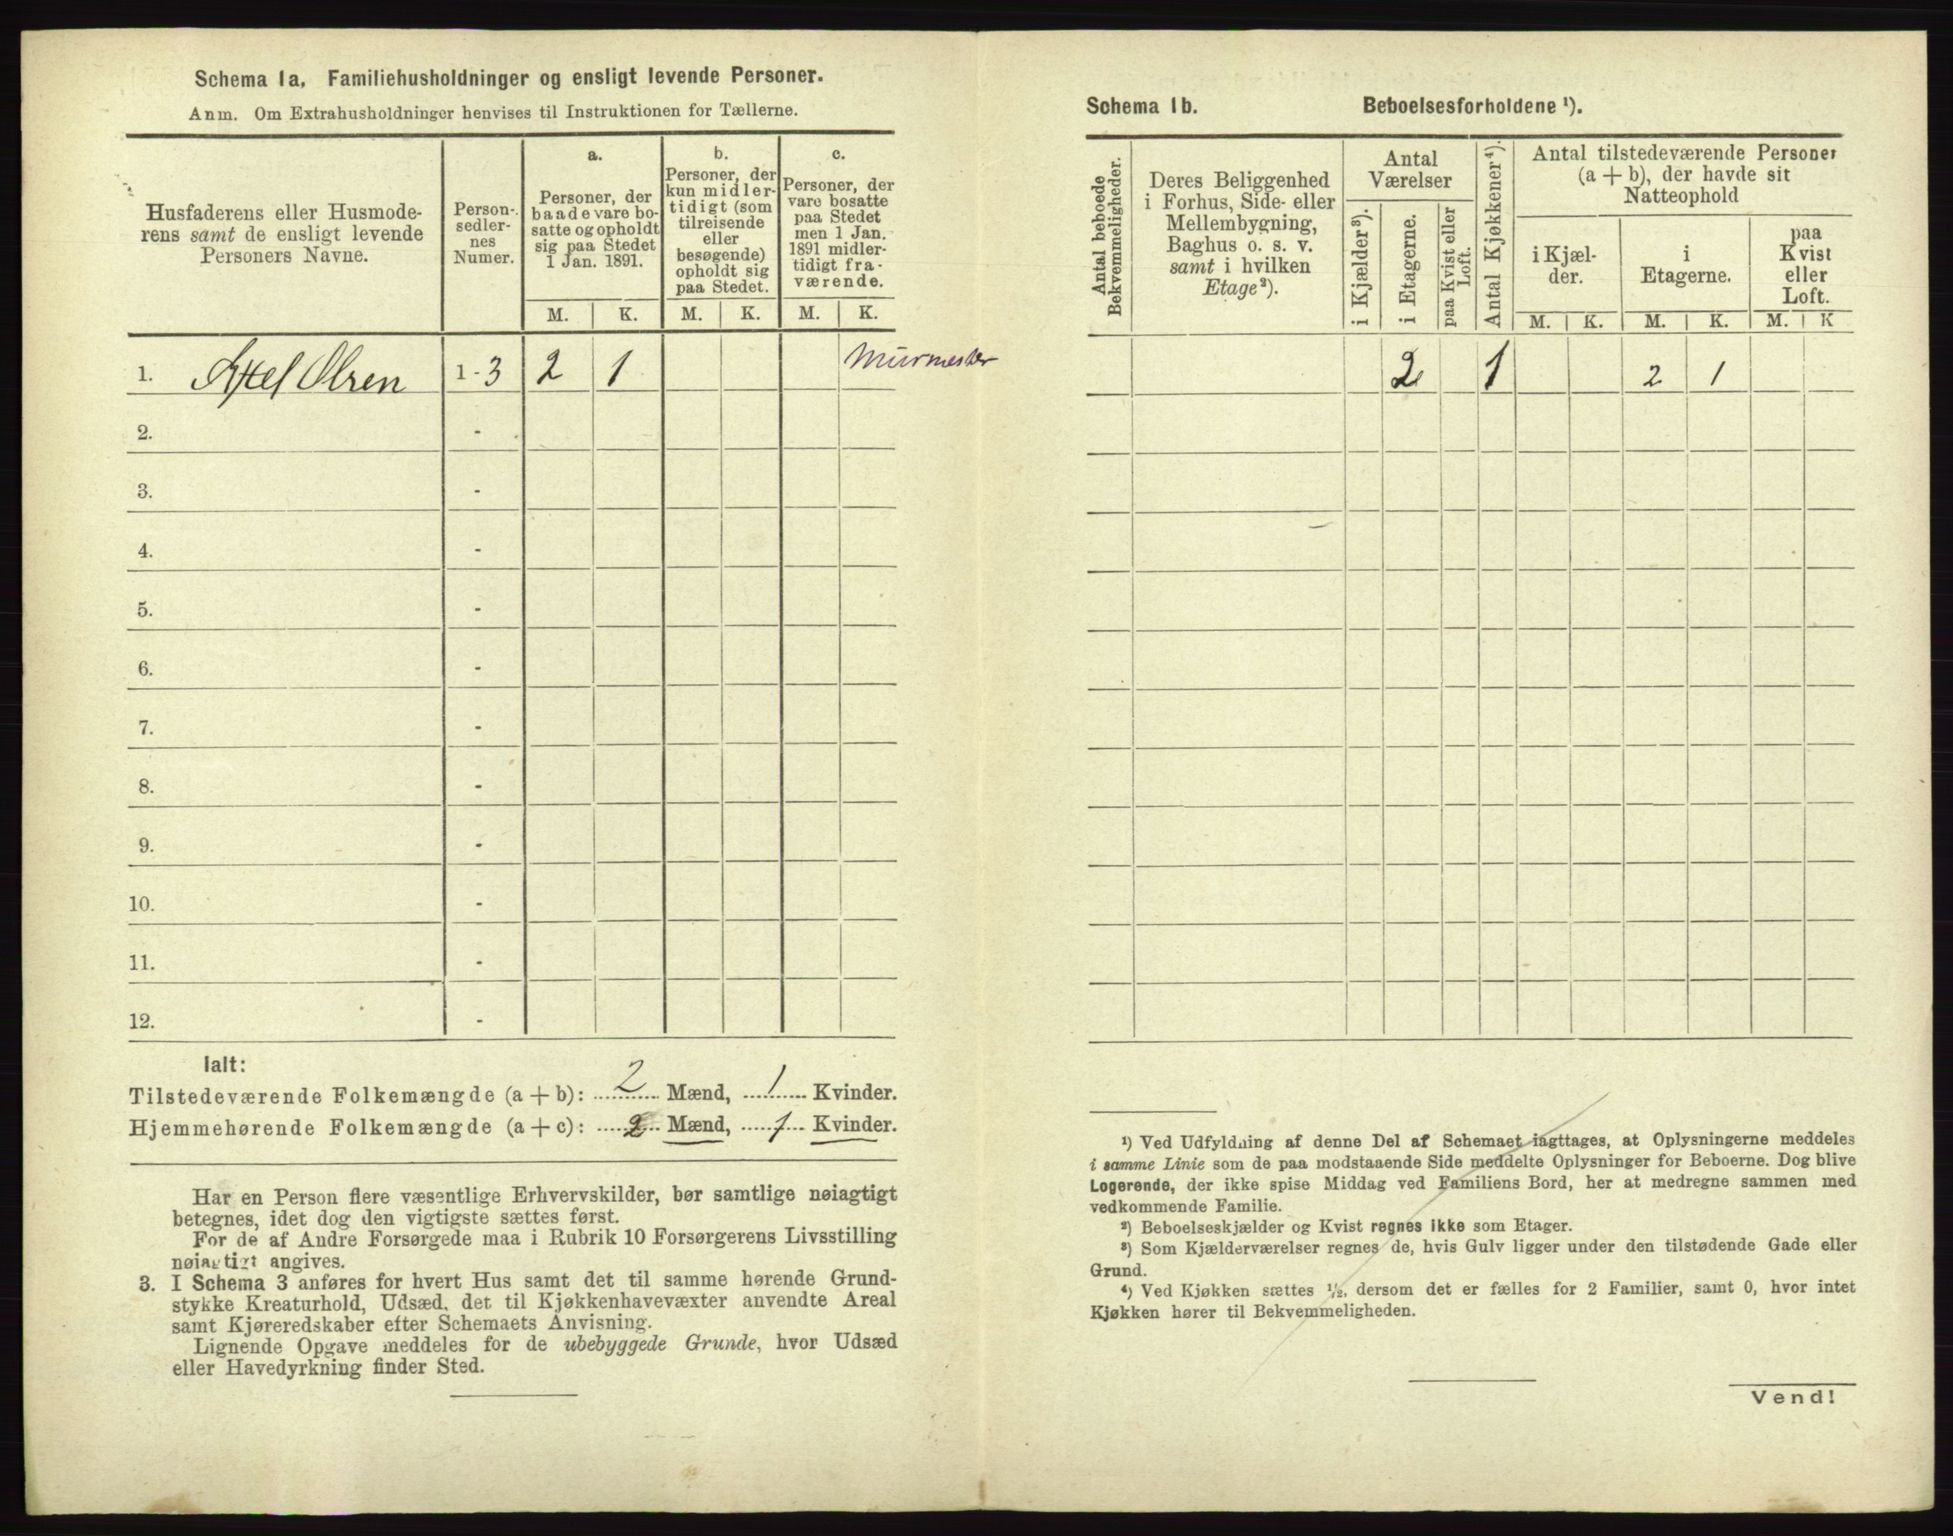 Schema 1a. Familiehusholdninger og ensligt levende Personer.
Anm. Om Extrahusholdninger henvises til Instruktionen for Tællerne.
Husfaderens eller Husmode-
rens samt de ensligt levende
Personers Navne.
Person-
sedler-
nes
Numer.
a.
Personer, der
baade vare bo-
satte og opholdt
sig paa Stedet
1 Jan. 1891.
b.
Personer, der
kun midler-
tidigt (som
tilreisende
eller
besøgende)
opholdt sig
paa Stedet.
c.
Personer, der
vare bosatte
paa Stedet
men 1 Jan.
1891 midler-
tidigt fra-
værende.
M. K. M. K. M. K.
1. Axel Olsen 1-3 2 1 Murmester
2. -
3. -
4. -
5. -
6. -
7. -
8. -
9. -
10. -
11. -
12. -
Ialt:
Tilstedeværende Folkemængde (a + b): 2 Mænd, 1 Kvinder.
Hjemmehørende Folkemængde (a + c): 2 Mænd, 1 Kvinder.
Har en Person flere væsentlige Erhvervskilder, bør samtlige nøiagtigt
betegnes, idet dog den vigtigste sættes først.
For de af Andre Forsørgede maa i Rubrik 10 Forsørgerens Livsstilling
nøiagtigt angives.
3. I Schema 3 anføres for hvert Hus samt det til samme hørende Grund-
stykke Kreaturhold, Udsæd, det til Kjøkkenhavevæxter anvendte Areal
samt Kjøreredskaber efter Schemaets Anvisning.
Lignende Opgave meddeles for de ubebyggede Grunde, hvor Udsæd
eller Havedyrkning finder Sted.
Schema 1b. Beboelsesforholdene ¹).
Antal beboede
Bekvemmeligheder.
Deres Beliggenhed
i Forhus, Side- eller
Mellembygning,
Baghus o. s. v.
samt i hvilken
Etage²).
Antal
Værelser
i Kjælder³).
i Etagerne.
paa Kvist eller
Loft.
Antal Kjøkkener⁴).
Antal tilstedeværende Personer
(a + b), der havde sit
Natteophold
i Kjæl-
der.
i
Etagerne.
paa
Kvist
eller
Loft.
M. K. M. K. M. K
2 1 2 1
¹) Ved Udfyldning af denne Del af Schemaet iagttages, at Oplysningerne meddeles
i samme Linie som de paa modstaaende Side meddelte Oplysninger for Beboerne. Dog blive
Logerende, der ikke spise Middag ved Familiens Bord, her at medregne sammen med
vedkommende Familie.
²) Beboelseskjælder og Kvist regnes ikke som Etager.
³) Som Kjælderværelser regnes de, hvis Gulv ligger under den tilstødende Gade eller
Grund.
⁴) Ved Kjøkken sættes ½, dersom det er fælles for 2 Familier, samt 0, hvor intet
Kjøkken hører til Bekvemmeligheden.
Vend!